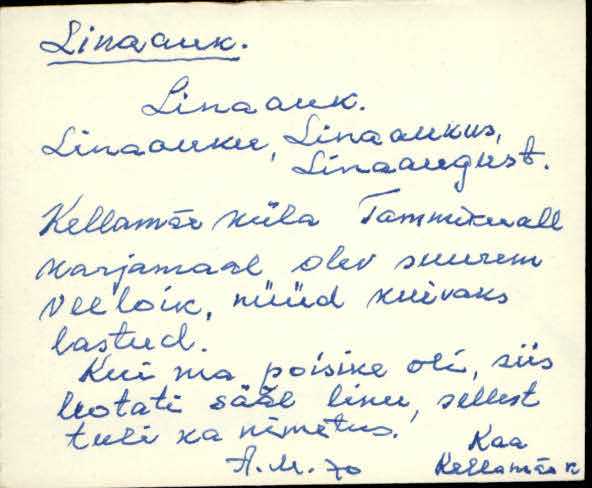 Linaauk.
Linaauk.
Linaauku, Linaaukus,
Linaaugust.
Kellamäe küla Tammiku all
karjamaal olev suurem
veeloik, nüüd kuivaks
lastud.
Kui ma poisike oli, siis
leotati sääl linu, sellest
tuli ka nimetus.
A.M. 70
Kaa
Kellamäe k